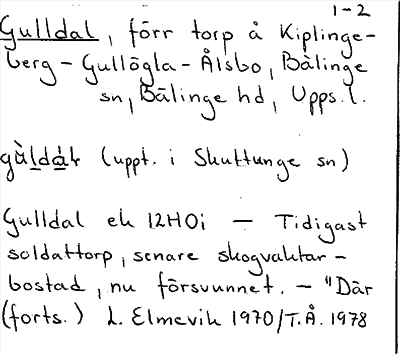 1-2
Gulldal, förr torp å Kiplinge-
berg - Gullögla - Ålsbo, Bälinge
sn, Bälinge hd, Upps. l.
gùldàl (uppt. i Skuttunge sn)
Gulldal ek 12H0i — Tidigast
soldattorp, senare skogvaktar-
bostad, nu försvunnet. - "Där
(forts.) L. Elmevik 1970/T.Å. 1978